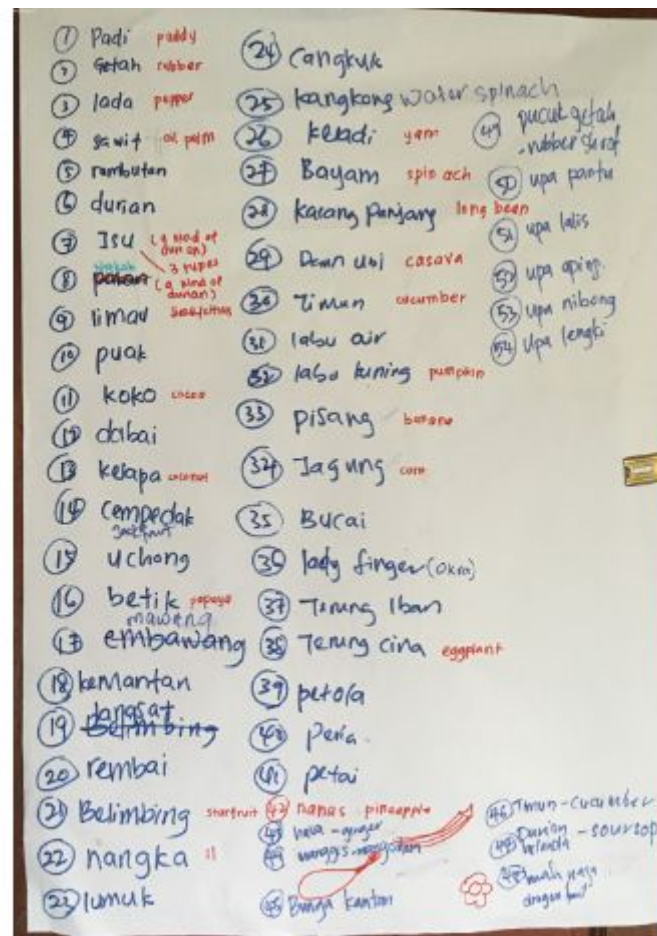 ① Padi paddy
② Getah rubber
③ lada pepper
④ sawit oil palm
⑤ rambutan
⑥ durian
⑦ Isu (a kind of durian)
3 types
⑧ (a kind of durian)
⑨ limau
⑩ puak
⑪ koko cocoa
⑫ dabai
⑬ kelapa coconut
⑭ Cempedak
jackfruit
⑮ uchong
⑯ betik papaya
mawang
⑰ embawang
⑱ kemantan
langsat
⑲ Belimbing
⑳ rembai
㉑ Belimbing starfruit
㉒ nangka
㉓ lumuk
㉔ Cangkuk
㉕ kangkong water spinach
㉖ keladi yam
㉗ Bayam spinach
㉘ kacang panjang long bean
㉙ Daun ubi casava
㉚ Timun cucumber
㉛ labu air
㉜ labu kuning pumpkin
㉝ pisang banana
㉞ Jagung corn
㉟ Bucai
㊱ lady finger (okra)
㊲ Terung Iban
㊳ Terung cina eggplant
㊴ petola
㊵ peria
㊶ petai
㊷ nanas pineapple
㊸ - ginger
㊹ manggis -
㊺ Bunga kantan
㊻ Timun - cucumber
Durian belanda - soursop
㊽ mata naga
dragon fruit
㊾ pucuk getah
- rubber
㊿ upa pantu
(51) upa lalis
(52) upa aping
(53) upa nibong
(54) upa lengki